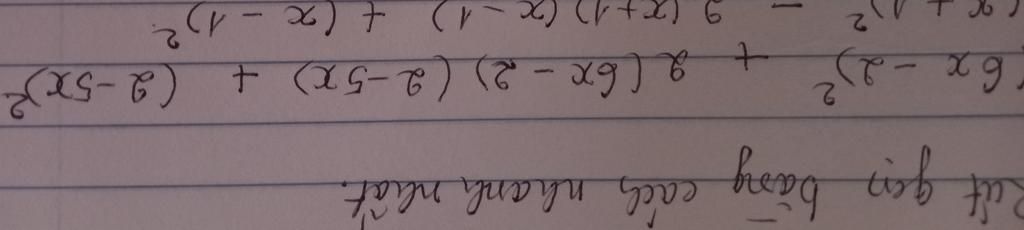 Rút gọn bằng cách nhanh nhất.
(6x - 2)² + 2(6x - 2)(2 - 5x) + (2 - 5x)²
(x + 1)² - 2(x+1)(x - 1) + (x - 1)²